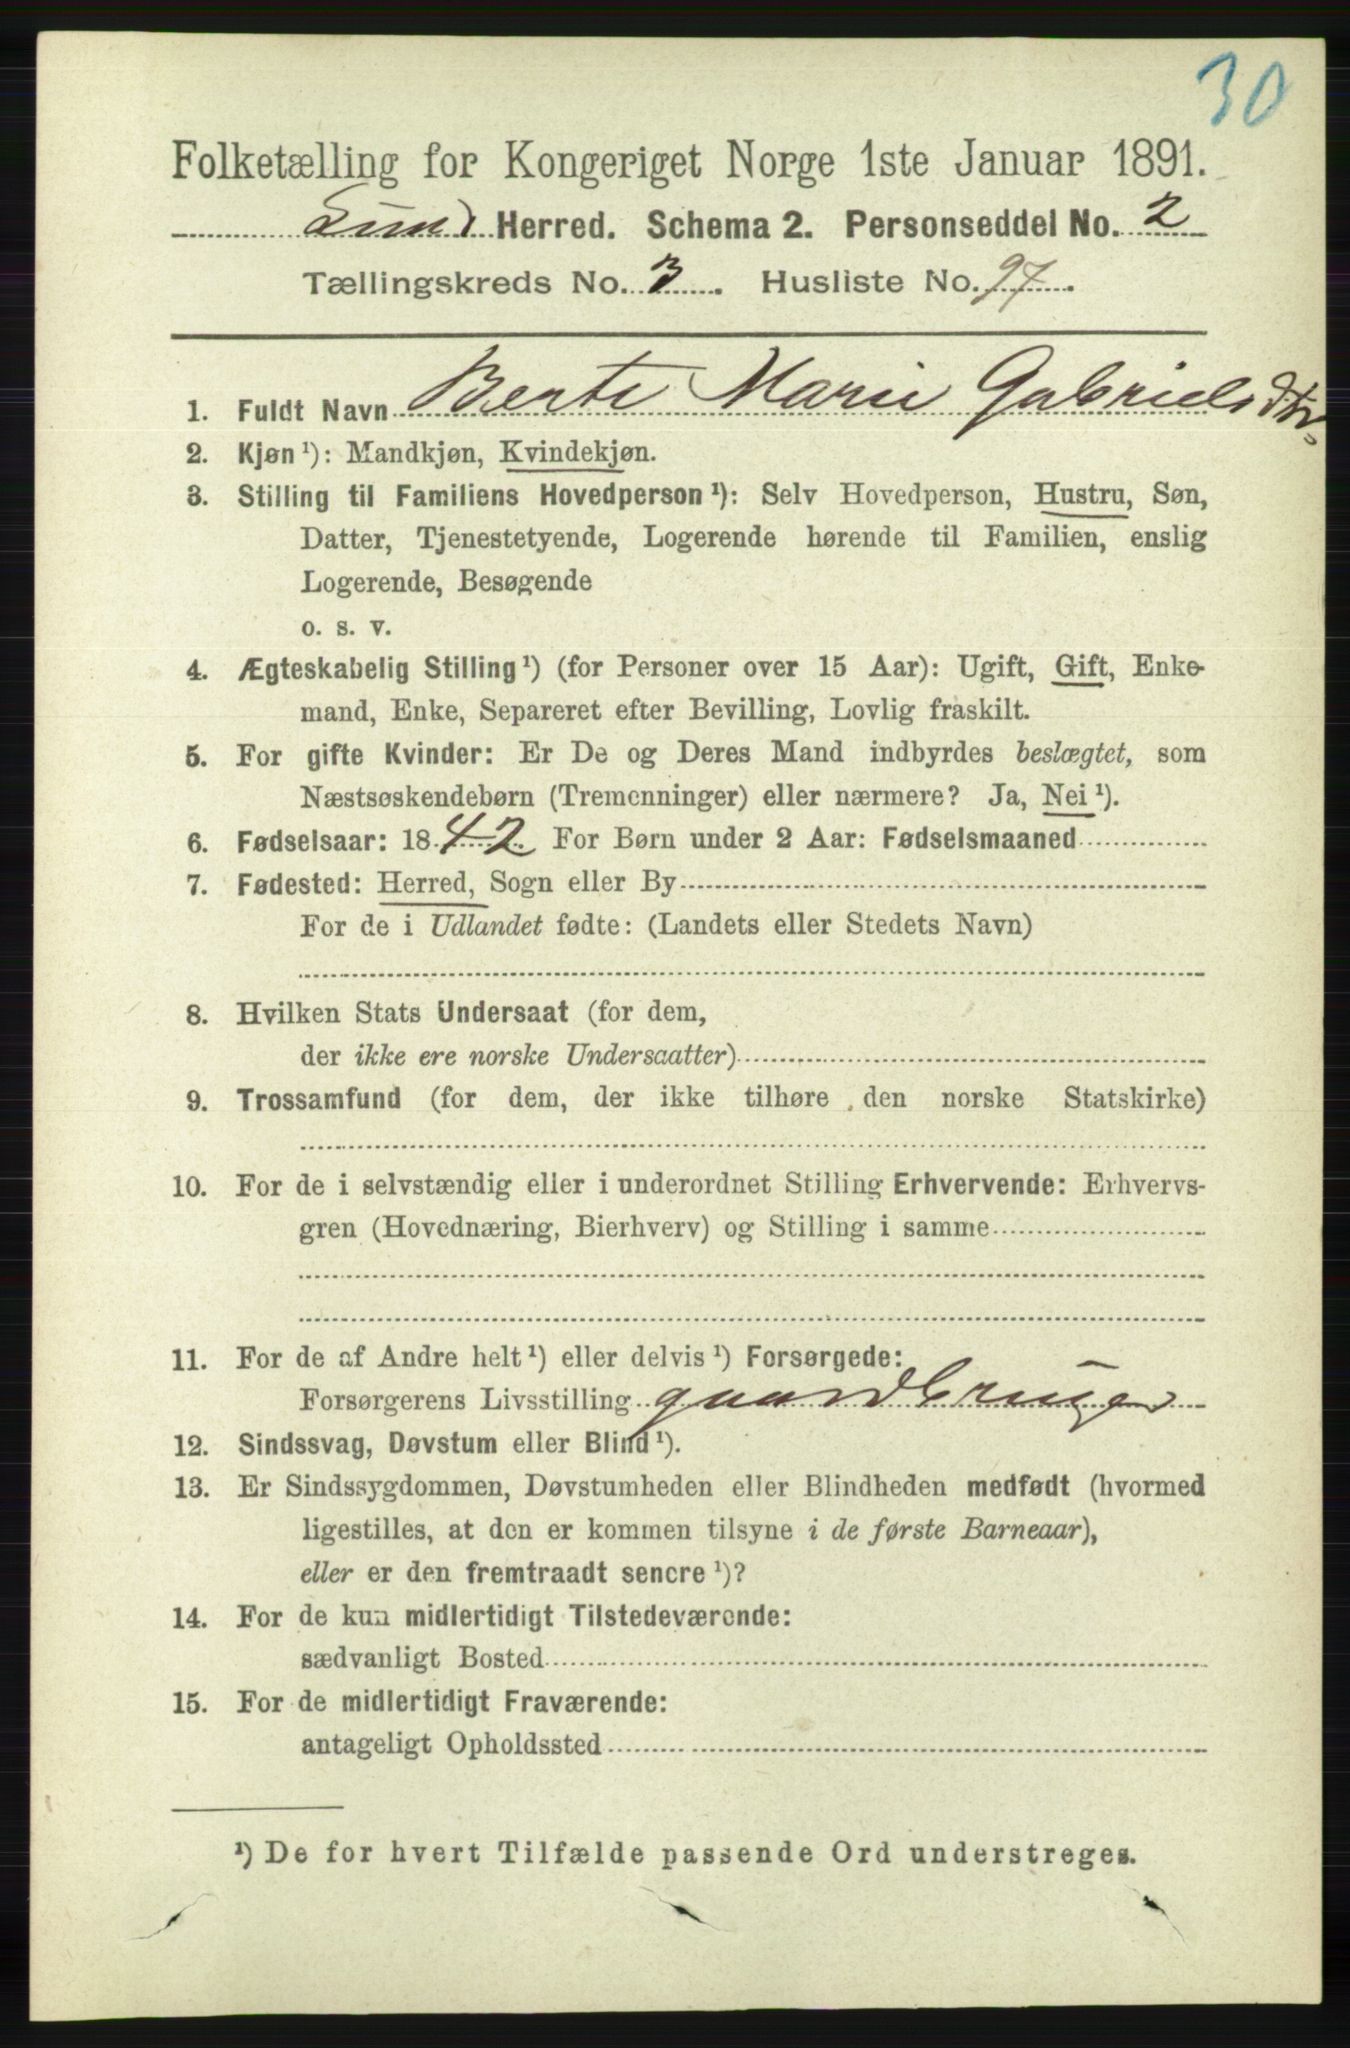 30
Folketælling for Kongeriget Norge 1ste Januar 1891.
Lund Herred. Schema 2. Personseddel No. 2
Tællingskreds No. 3. Husliste No. 97.
1. Fuldt Navn Berte Marie Gabrielsdtr.
2. Kjøn¹): Mandkjøn, Kvindekjøn.
3. Stilling til Familiens Hovedperson¹): Selv Hovedperson, Hustru, Søn,
Datter, Tjenestetyende, Logerende hørende til Familien, enslig
Logerende, Besøgende
o. s. v.
4. Ægteskabelig Stilling¹) (for Personer over 15 Aar): Ugift, Gift, Enke-
mand, Enke, Separeret efter Bevilling, Lovlig fraskilt.
5. For gifte Kvinder: Er De og Deres Mand indbyrdes beslægtet, som
Næstsøskendebørn (Tremenninger) eller nærmere? Ja, Nei¹).
6. Fødselsaar: 1842. For Børn under 2 Aar: Fødselsmaaned
7. Fødested: Herred, Sogn eller By
For de i Udlandet fødte: (Landets eller Stedets Navn)
8. Hvilken Stats Undersaat (for dem,
der ikke ere norske Undersaatter)
9. Trossamfund (for dem, der ikke tilhøre den norske Statskirke)
10. For de i selvstændig eller i underordnet Stilling Erhvervende: Erhvervs-
gren (Hovednæring, Bierhverv) og Stilling i samme
11. For de af Andre helt¹) eller delvis¹) Forsørgede:
Forsørgerens Livsstilling gaardbruger
12. Sindssvag, Døvstum eller Blind¹).
13. Er Sindssygdommen, Døvstumheden eller Blindheden medfødt (hvormed
ligestilles, at den er kommen tilsyne i de første Barneaar),
eller er den fremtraadt senere¹)?
14. For de kun midlertidigt Tilstedeværende:
sædvanligt Bosted
15. For de midlertidigt Fraværende:
antageligt Opholdssted
¹) De for hvert Tilfælde passende Ord understreges.